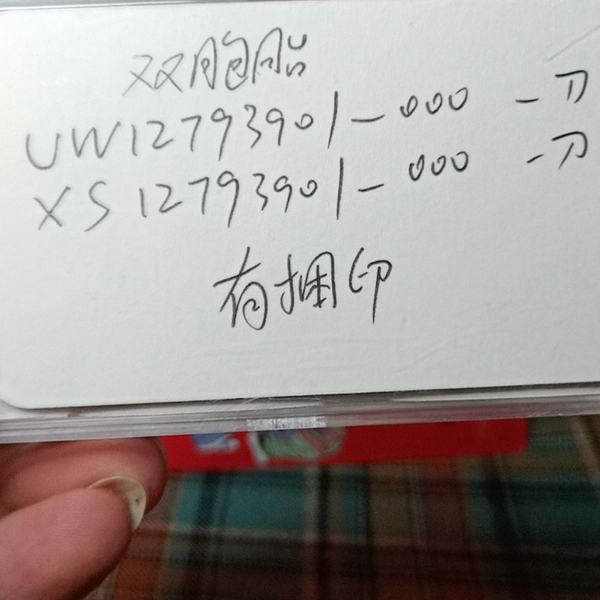 双胞胎
UW12793901-000 -刀
XS12793901-000 -刀
有捆印